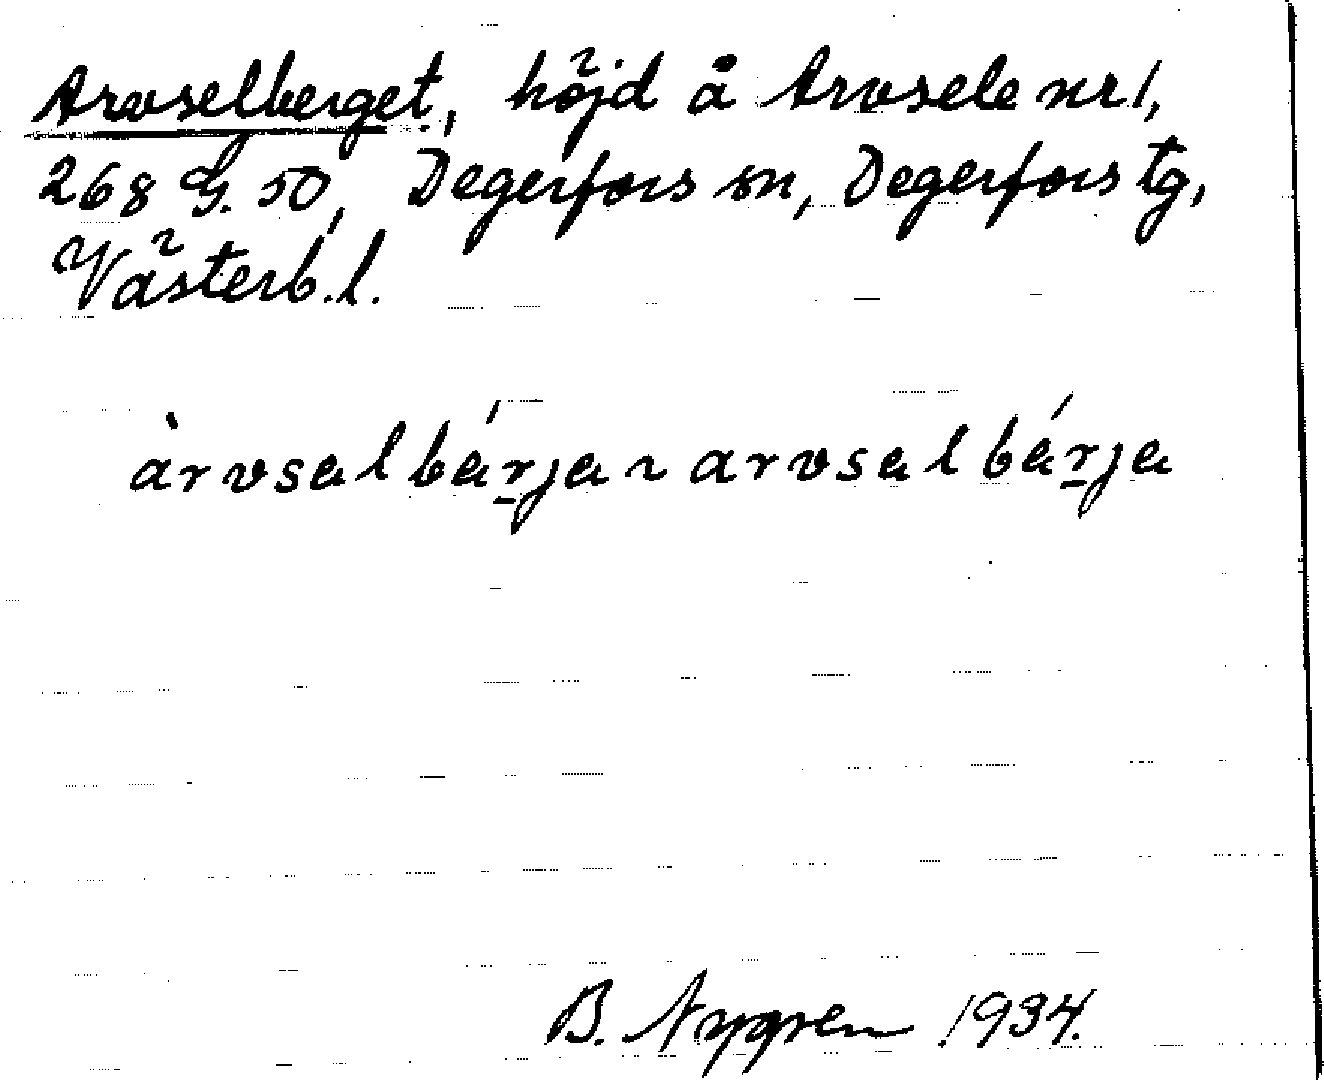 Arvselberget, höjd å Arvsele nr 1,
268 G. 50, Degerfors sn, Degerfors tg,
Västerb. l.
àrvsalbárja ~ arvsalbárja
B. Nygren 1934.